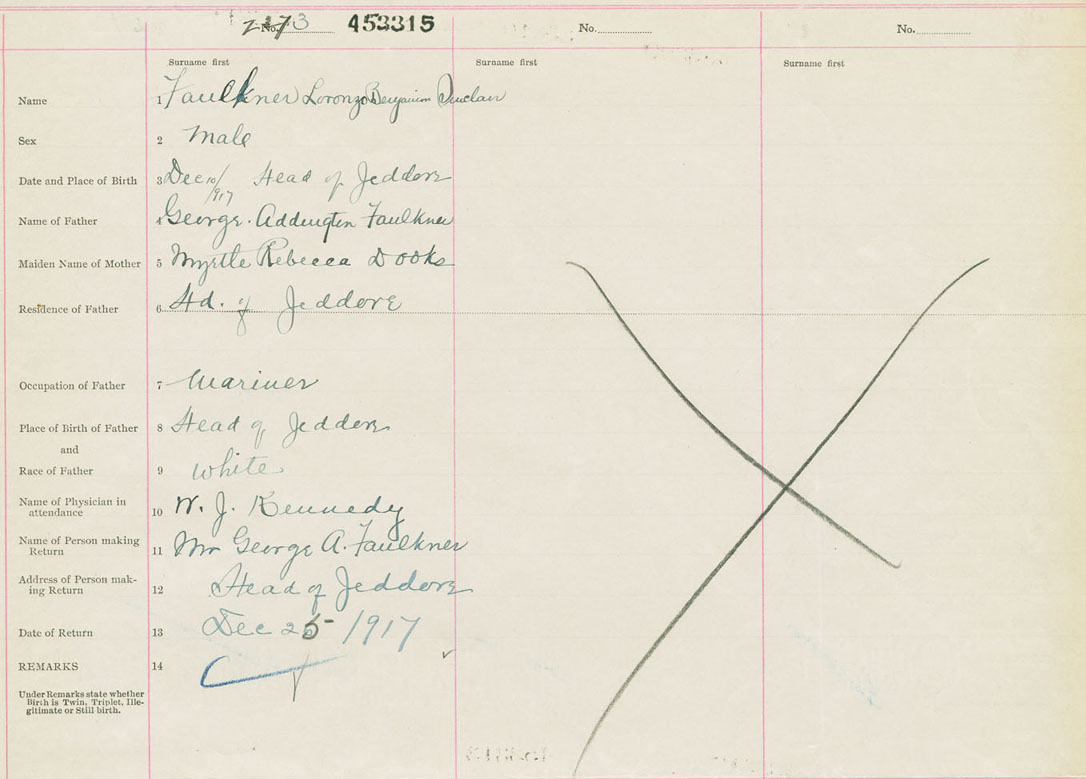 No. 2173 453315 No. No.
Surname first Surname first Surname first
Name 1 Faulkner Loronzo Benjamin Sinclair
Sex 2 Male
Date and Place of Birth 3 Dec 10/917 Head of Jeddore
Name of Father 4 George Addington Faulkner
Maiden Name of Mother 5 Myrtle Rebecca Dooks
Residence of Father 6 Hd. of Jeddore
Occupation of Father 7 Mariner
Place of Birth of Father 8 Head of Jeddore
and
Race of Father 9 White
Name of Physician in
attendance 10 W. J. Kennedy
Name of Person making
Return 11 Mr George A. Faulkner
Address of Person mak-
ing Return 12 Head of Jeddore
Date of Return 13 Dec 25 /1917
REMARKS 14
Under Remarks state whether
Birth is Twin, Triplet, Ille-
gitimate or Still birth.